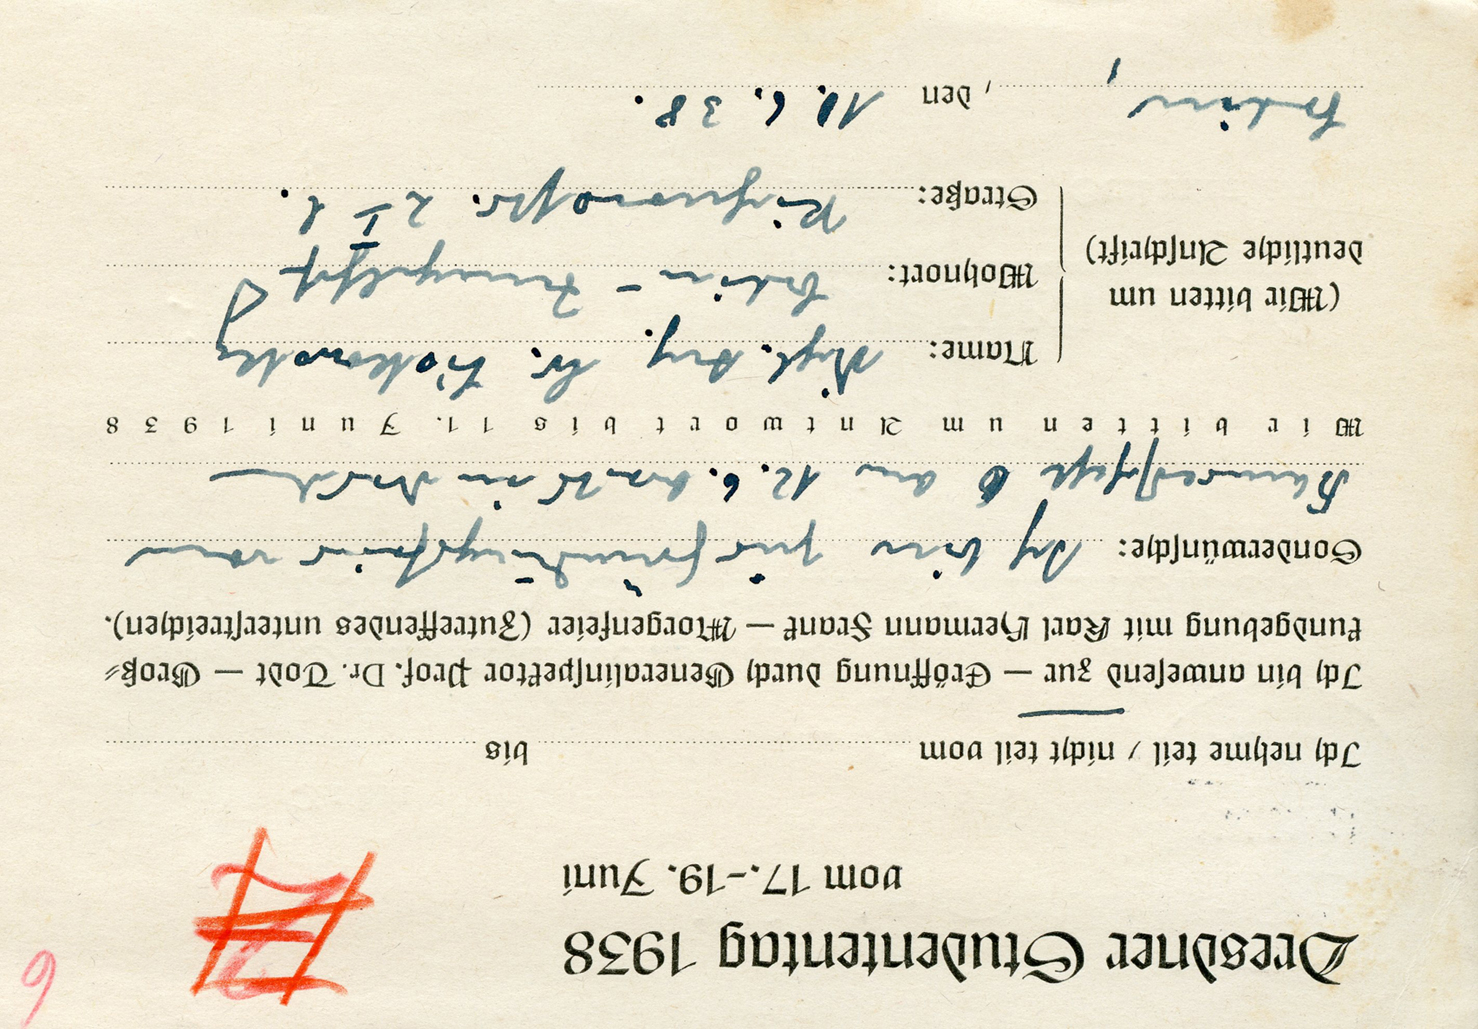 Dresdner Studententag 1938
vom 17.–19. Juni
Ich nehme teil / nicht teil vom bis
Ich bin anwesend zur — Eröffnung durch Generalinspektor Prof. Dr. Todt — Groß-
kundgebung mit Karl Hermann Frank — Morgenfeier (Zutreffendes unterstreichen).
Sonderwünsche: Ich bin zur
am 12.6. in
Wir bitten um Antwort bis 11. Juni 1938
(Wir bitten um
deutliche Anschrift)
Name: Dipl. Ing.
Wohnort: Berlin - Tempelhof
Straße: 2 I l.
Berlin, den 10.6.38.
6